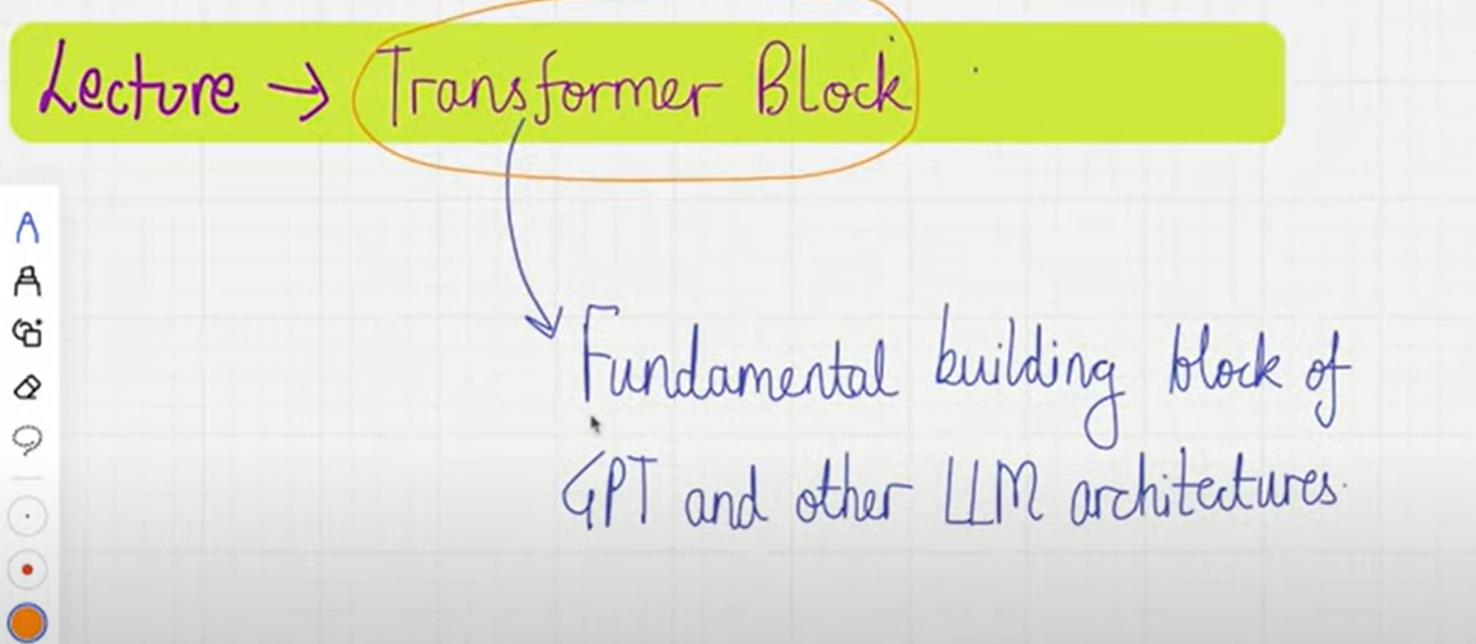 Lecture → Transformer Block
Fundamental building block of
GPT and other LLM architectures.